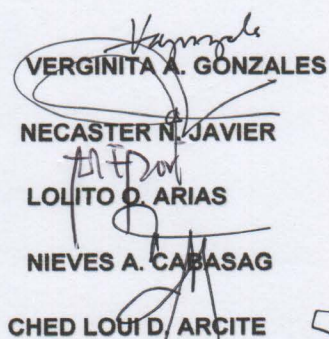 VERGINITA A. GONZALES
NECASTER N. JAVIER
LOLITO O. ARIAS
NIEVES A. CABASAG
CHED LOUI D. ARCITE